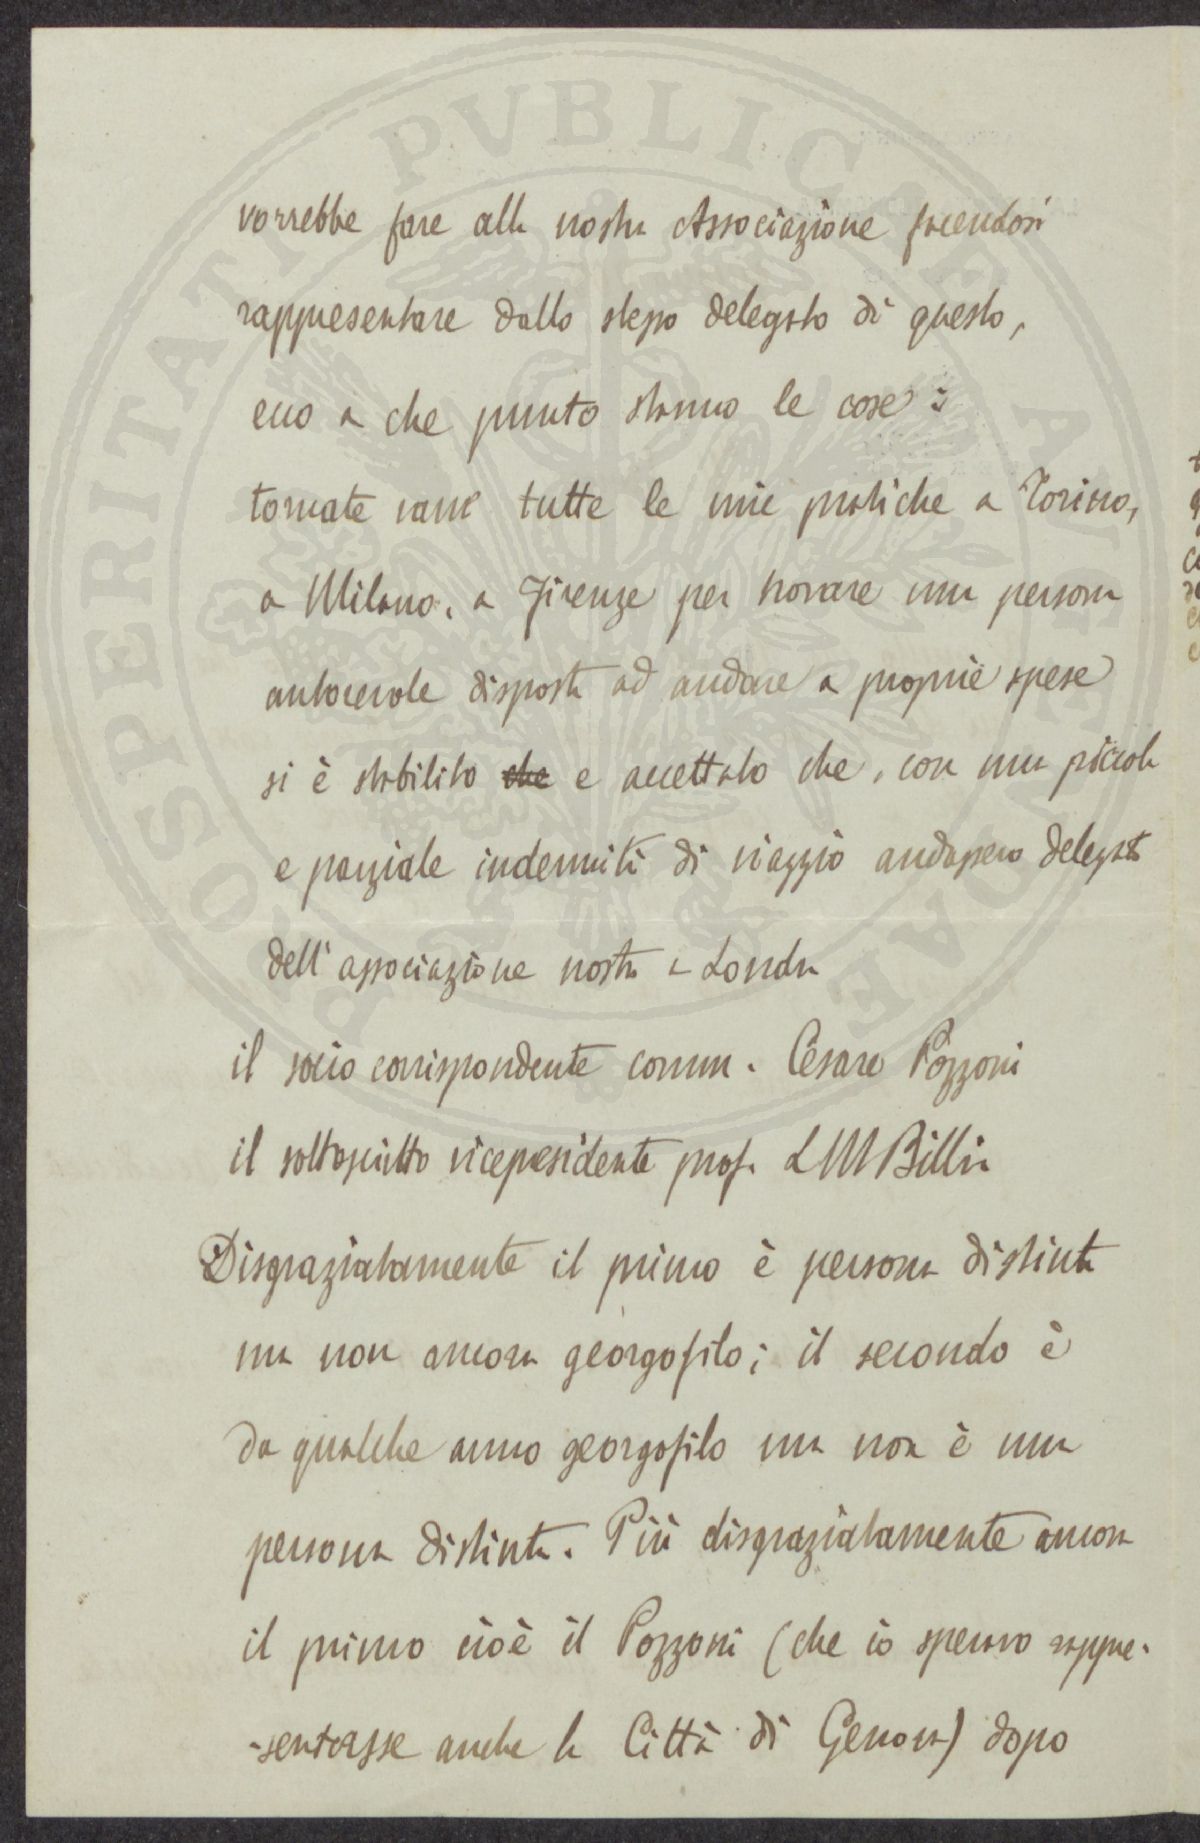 vorrebbe fare alla nostra Associazione facendosi
rappresentare dallo stesso delegato di questo,
ecco a che punto stanno le cose:
tornate vane tutte le mie pratiche a Torino,
a Milano, a Firenze per trovare una persona
autorevole disposta ad andare a proprie spese
si è stabilito che e accettato che, con una piccola
e parziale indennità di viaggio andassero delegati
dell'associazione nostra a Londra
il socio corrispondente comm. Cesare Pozzoni
il sottoscritto vicepresidente prof. L M Billia
Disgraziatamente il primo è persona distinta
ma non ancora georgofilo; il secondo è
da qualche anno georgofilo ma non è una
persona distinta. Più disgraziatamente ancora
il primo cioè il Pozzoni (che io speravo rappre-
-sentasse anche la Città di Genova) dopo
PVBLICAE
PROSPERITATI AVGENDAE